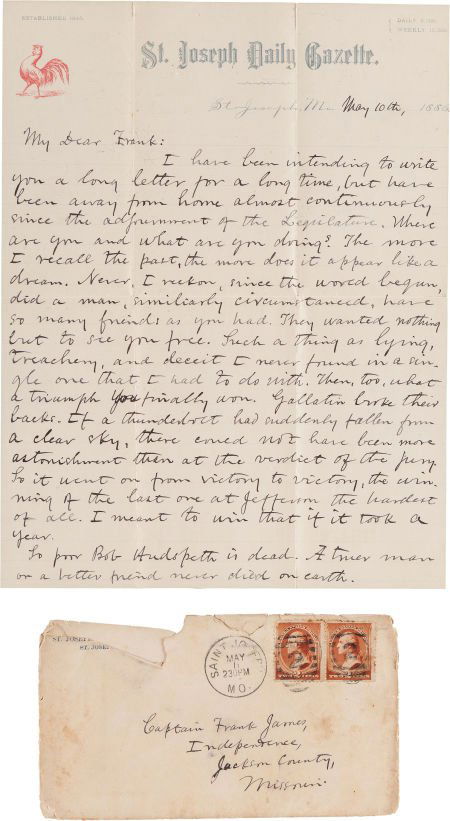 ESTABLISHED 1845.
St. Joseph Daily Gazette.
St. Joseph, Mo. May 10th, 188
My Dear Frank:
I have been intending to write
you a long letter for a long time, but have
been away from home almost continuously
since the adjournment of the Legislature. Where
are you and what are you doing? The more
I recall the past, the more does it appear like a
dream. Never, I reckon, since the world began,
did a man, similiarly circumstanced, have
so many friends as you had. They wanted nothing
but to see you free. Such a thing as lying,
treachery, and deceit I never found in a sin-
gle one that I had to do with. Then, too, what
a triumph you finally won. Gallatin broke their
backs. If a thunderbolt had suddenly fallen from
a clear sky, there could not have been more
astonishment than at the verdict of the jury.
So it went on from victory to victory, the win-
ning of the last one at Jefferson the hardest
of all. I meant to win that if it took a
year.
So poor Bob Hudspeth is dead. A truer man
or a better friend never died on earth.
ST. JOSEPH
ST. JOSEPH
SAINT JOSEPH
MAY
11
230PM
MO.
Captain Frank James,
Independence,
Jackson County,
Missouri.